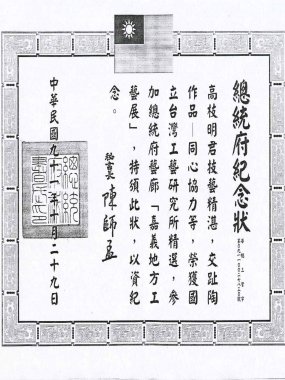 總統府紀念狀
高枝明君技藝精湛，交趾陶
作品—同心協力等，榮獲國
立台灣工藝研究所精選，參
加總統府藝廊「嘉義地方工
藝展」，特頒此狀，以資紀
念。
秘書長 陳師孟
中華民國九十一年十月二十九日